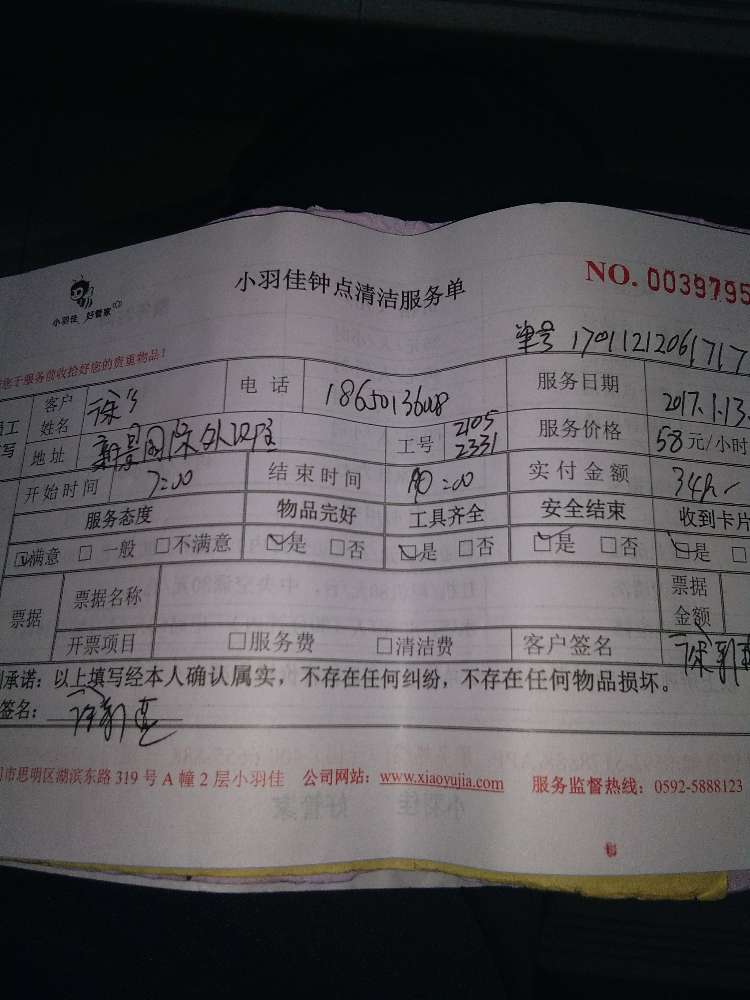 小羽佳 好管家
小羽佳钟点清洁服务单
NO. 0039795
单号 17011212061717
您于服务前收拾好您的贵重物品!
客户姓名 徐 电话 服务日期 2017.1.13.
地址 工号 2105 2331 服务价格 58元/小时
开始时间 7:00 结束时间 实付金额
服务态度 物品完好 工具齐全 安全结束 收到卡片
☑满意 □一般 □不满意 ☑是 □否 ☑是 □否 ☑是 □否 ☑是 □
票据 票据名称 票据金额
开票项目 □服务费 □清洁费 客户签名
承诺:以上填写经本人确认属实,不存在任何纠纷,不存在任何物品损坏。
签名:
市思明区湖滨东路 319 号 A 幢 2 层小羽佳 公司网站:www.xiaoyujia.com 服务监督热线:0592-5888123